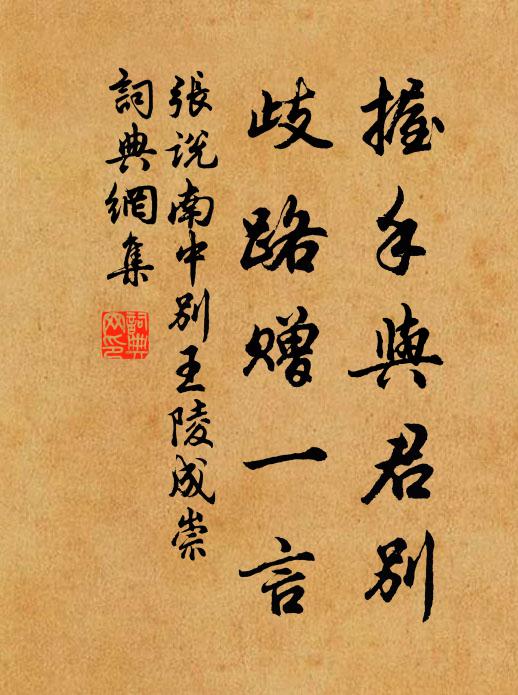 握手與君別
歧路贈一言
張說南中別王陵成崇
詞典網集
詞典網印